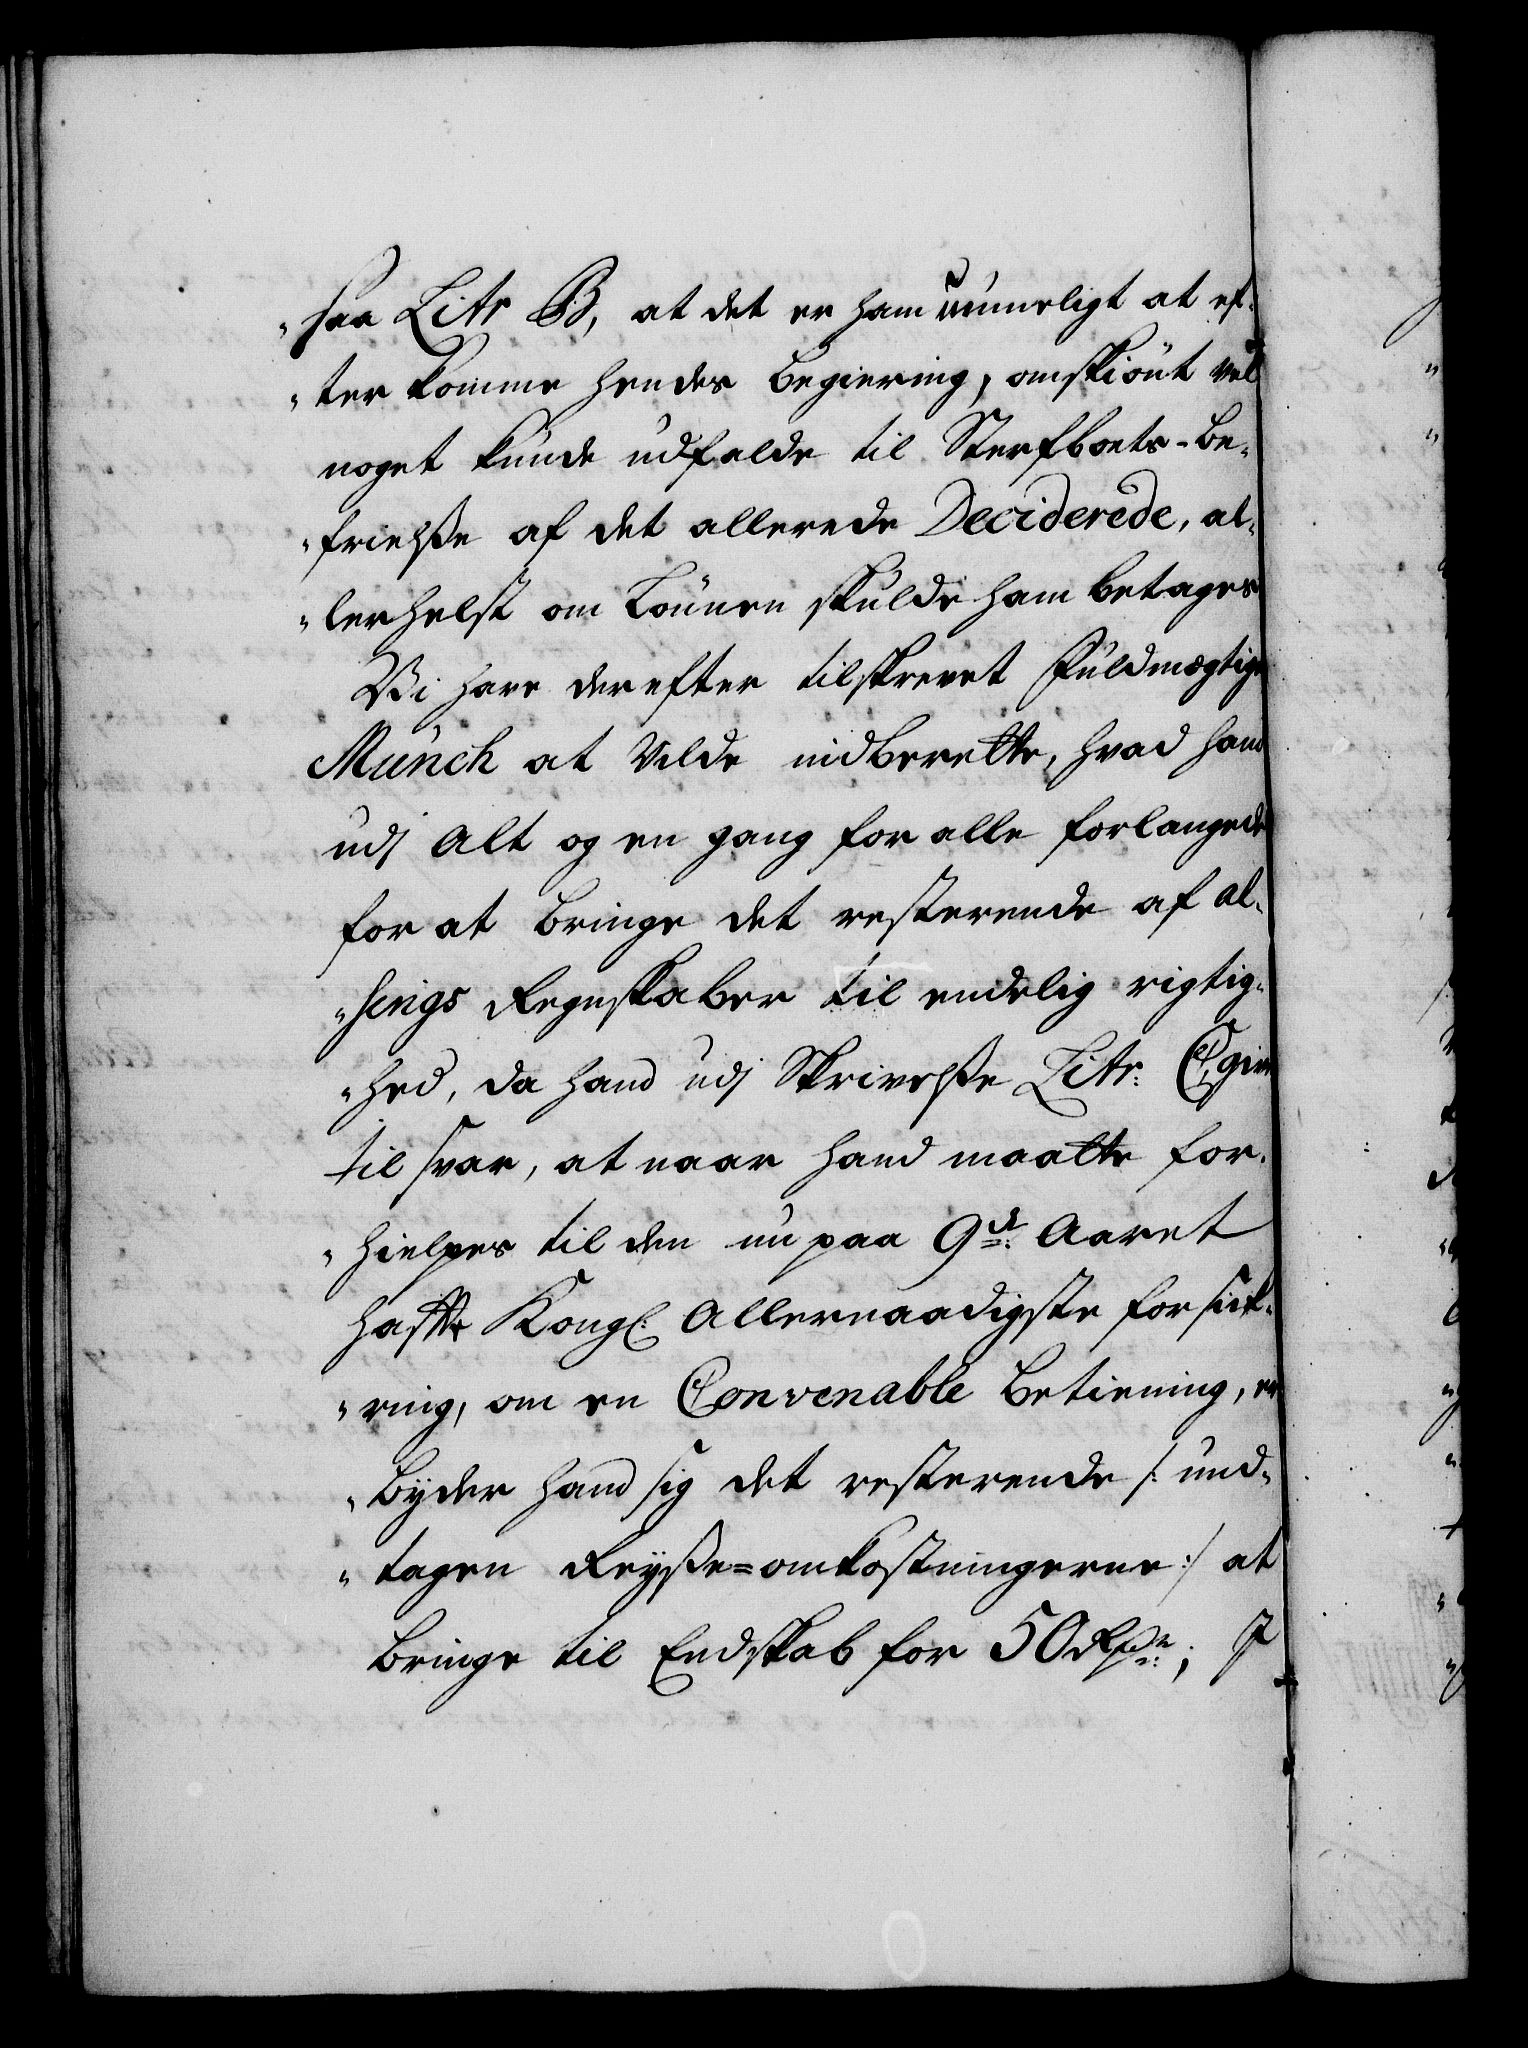 "saa Litr B, at det er ham uumueligt at ef-
"ter komme hendes begiering, omskiönt vel
noget kunde udfalde til Sterfboets-be-
"frielße af det allerede Deciderede, al-
"lerhelst om Lönnen skulde ham betages
Vi have derefter tilskrevet Fuldmægtig
Münch at vilde indberette, hvad hand
udj Alt og en gang for alle forlangede
for at bringe det resterende af al-
"herigs Regnskaber til endelig rigtig-
"hed, da hand udj Skrivelße Litr: C give
til svar, at naar hand maatte for-
"hielpes til den nu paa 9de: Aaret
hafte Kongl: Allernaadigste forsik-
"ring, om en Convenable betiening, er
"byder hand sig det resterende /: und-
"tagen Reyße=omkostningerne :/ at
bringe til Endskab for 50 Rdr:; I